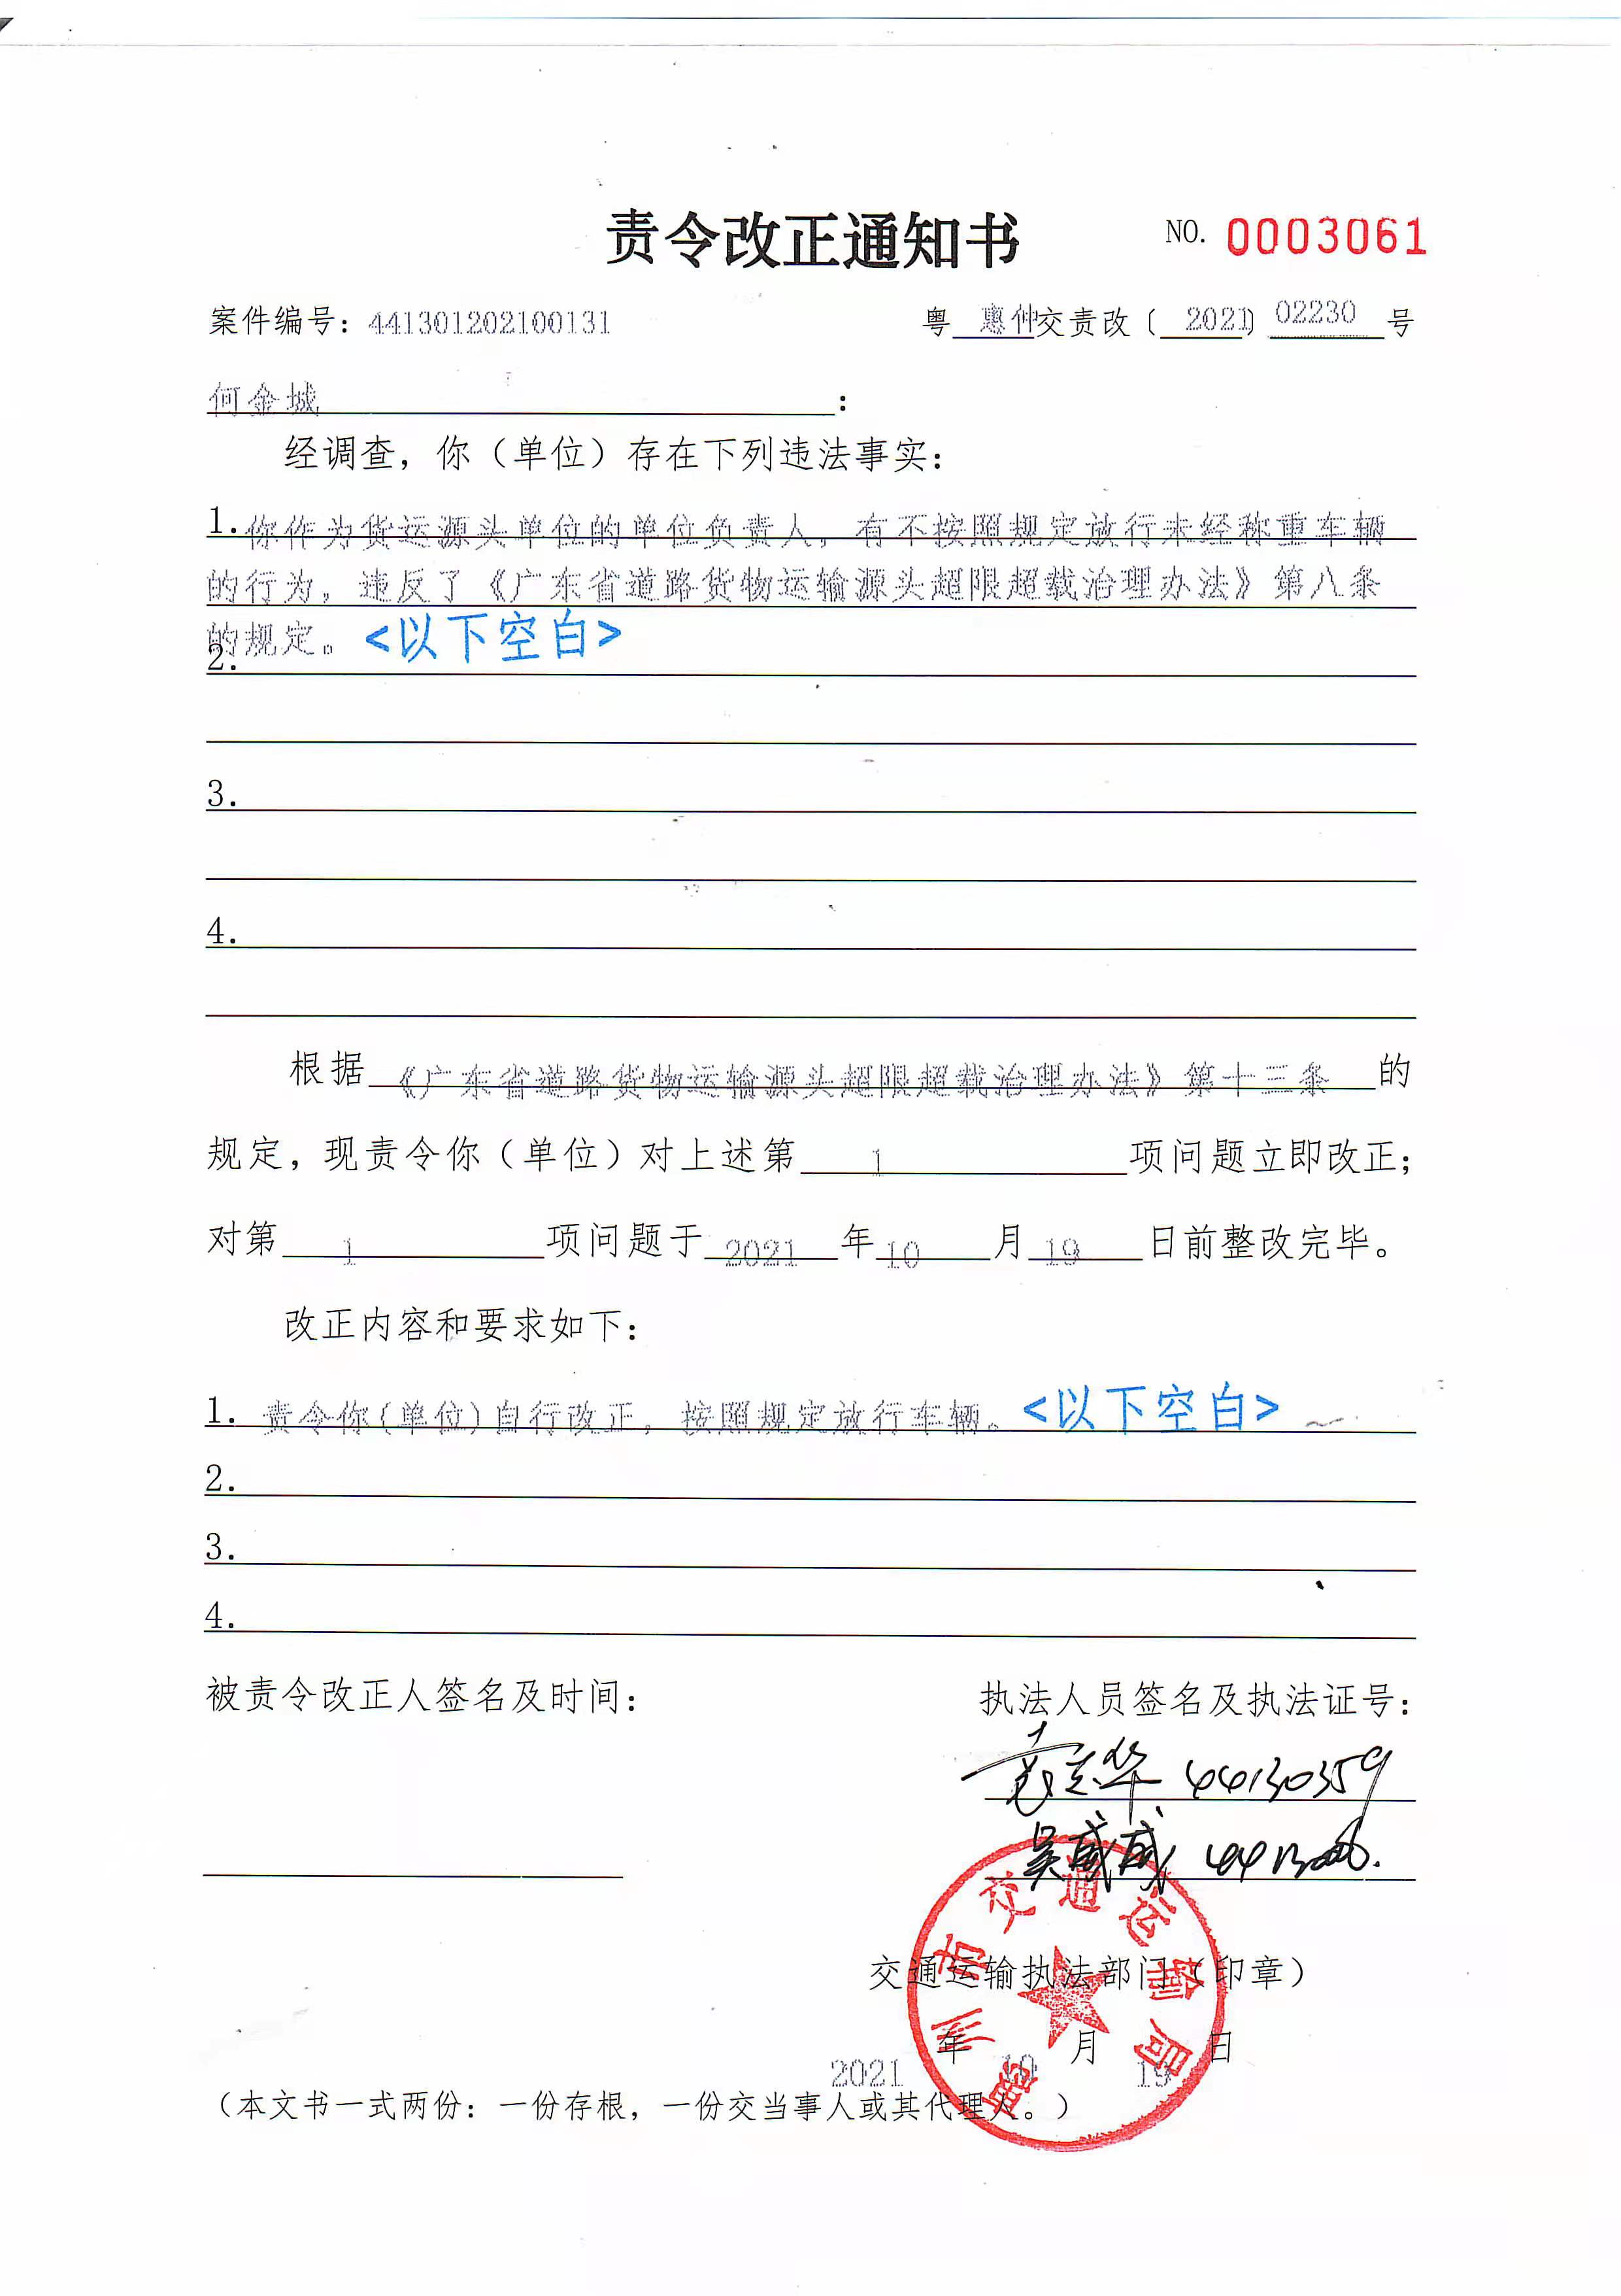 责令改正通知书 NO. 0003061
案件编号：441301202100131 粤 惠仲交责改〔 2021〕 02230 号
何金城：
经调查，你（单位）存在下列违法事实：
1.你作为货运源头单位的单位负责人，有不按照规定放行未经称重车辆
的行为，违反了《广东省道路货物运输源头超限超载治理办法》第八条
的规定。<以下空白>
2.
3.
4.
根据《广东省道路货物运输源头超限超载治理办法》第十三条的
规定，现责令你（单位）对上述第 1 项问题立即改正；
对第 1 项问题于 2021 年 10 月 19 日前整改完毕。
改正内容和要求如下：
1. 责令你(单位)自行改正，按照规定放行车辆。<以下空白>
2.
3.
4.
被责令改正人签名及时间： 执法人员签名及执法证号：
袁志华 44130359
吴威威
惠州市交通运输局
交通运输执法部门（印章）
2021 年 10 月 19 日
（本文书一式两份：一份存根，一份交当事人或其代理人。）